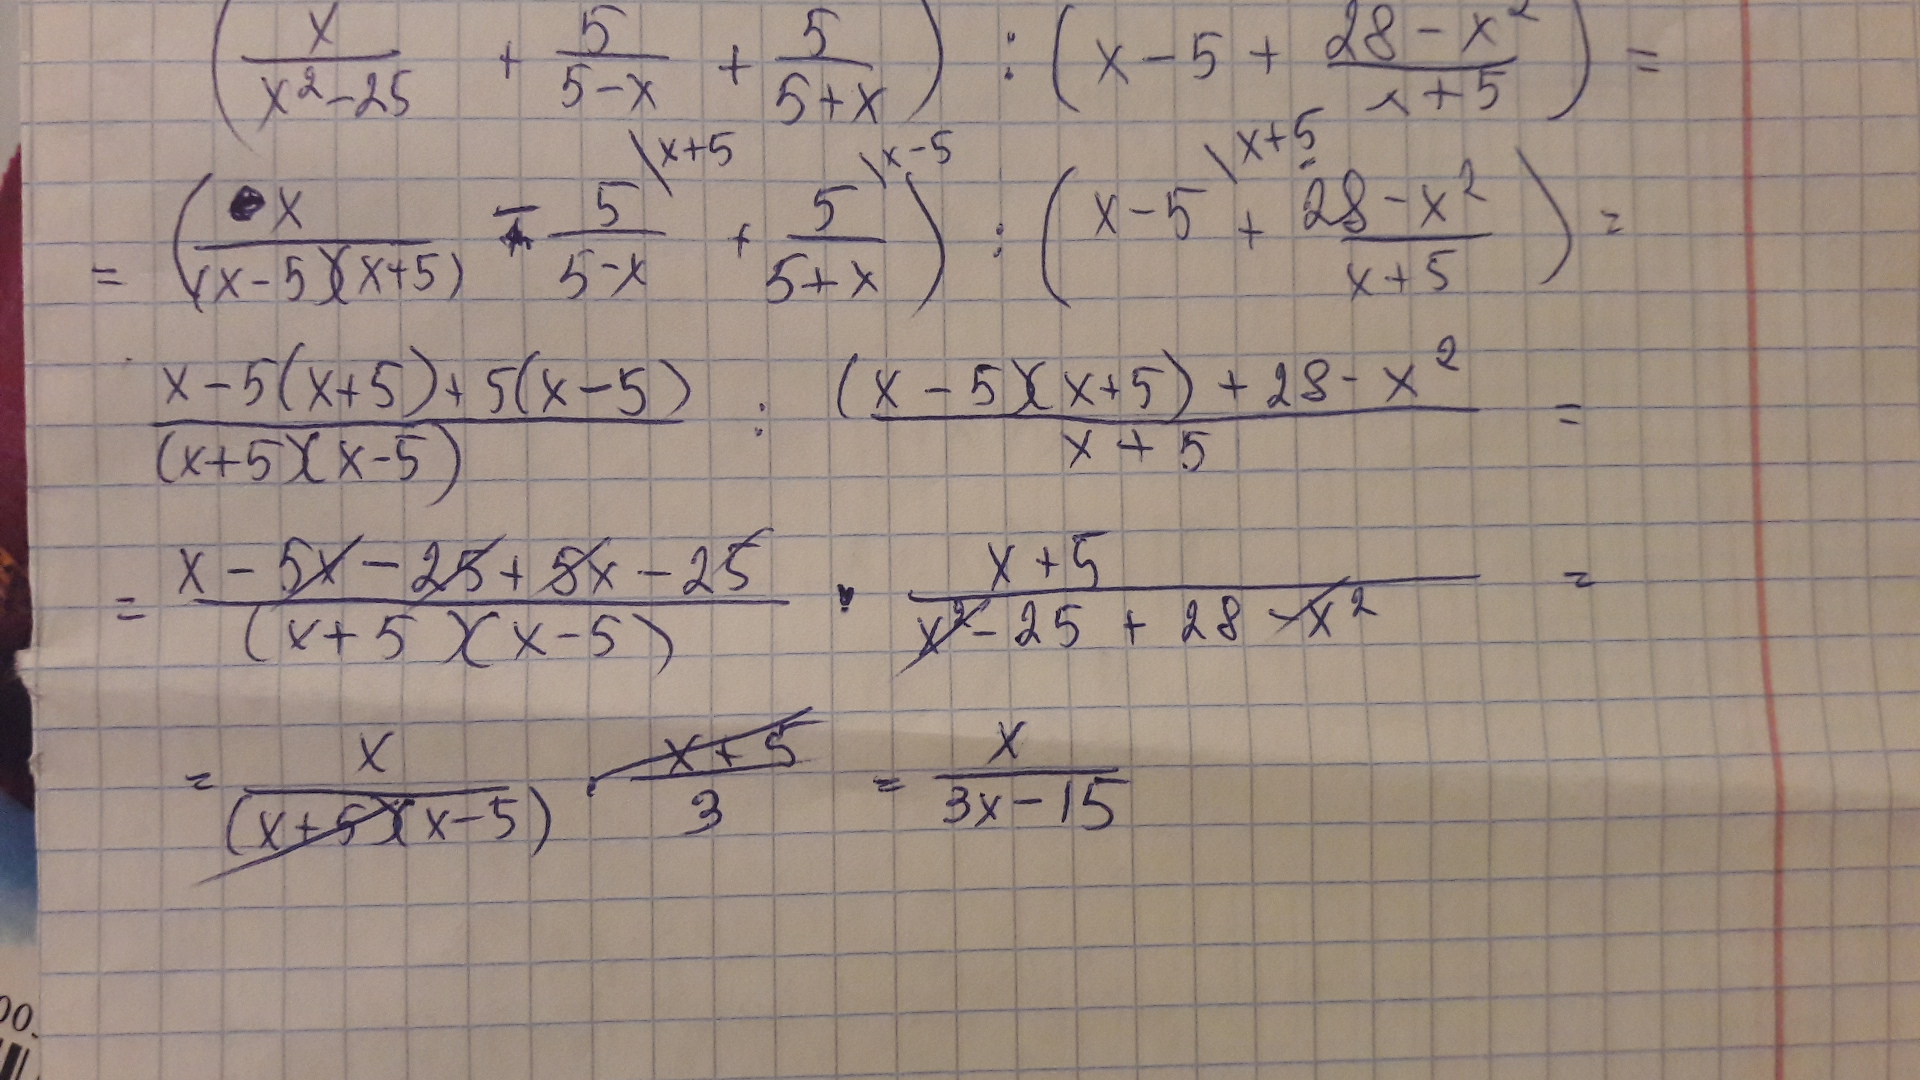 (x/(x²-25) + 5/(5-x) + 5/(5+x)) : (x-5 + (28-x²)/(x+5)) =
= (x/((x-5)(x+5)) - 5/(5-x) \x+5 + 5/(5+x) \x-5) : (x-5 \x+5 + (28-x²)/(x+5)) =
(x-5(x+5)+5(x-5))/((x+5)(x-5)) : ((x-5)(x+5)+28-x²)/(x+5) =
= (x-5x-25+5x-25)/((x+5)(x-5)) · (x+5)/(x²-25+28-x²) =
= x/((x+5)(x-5)) · (x+5)/3 = x/(3x-15)
00.